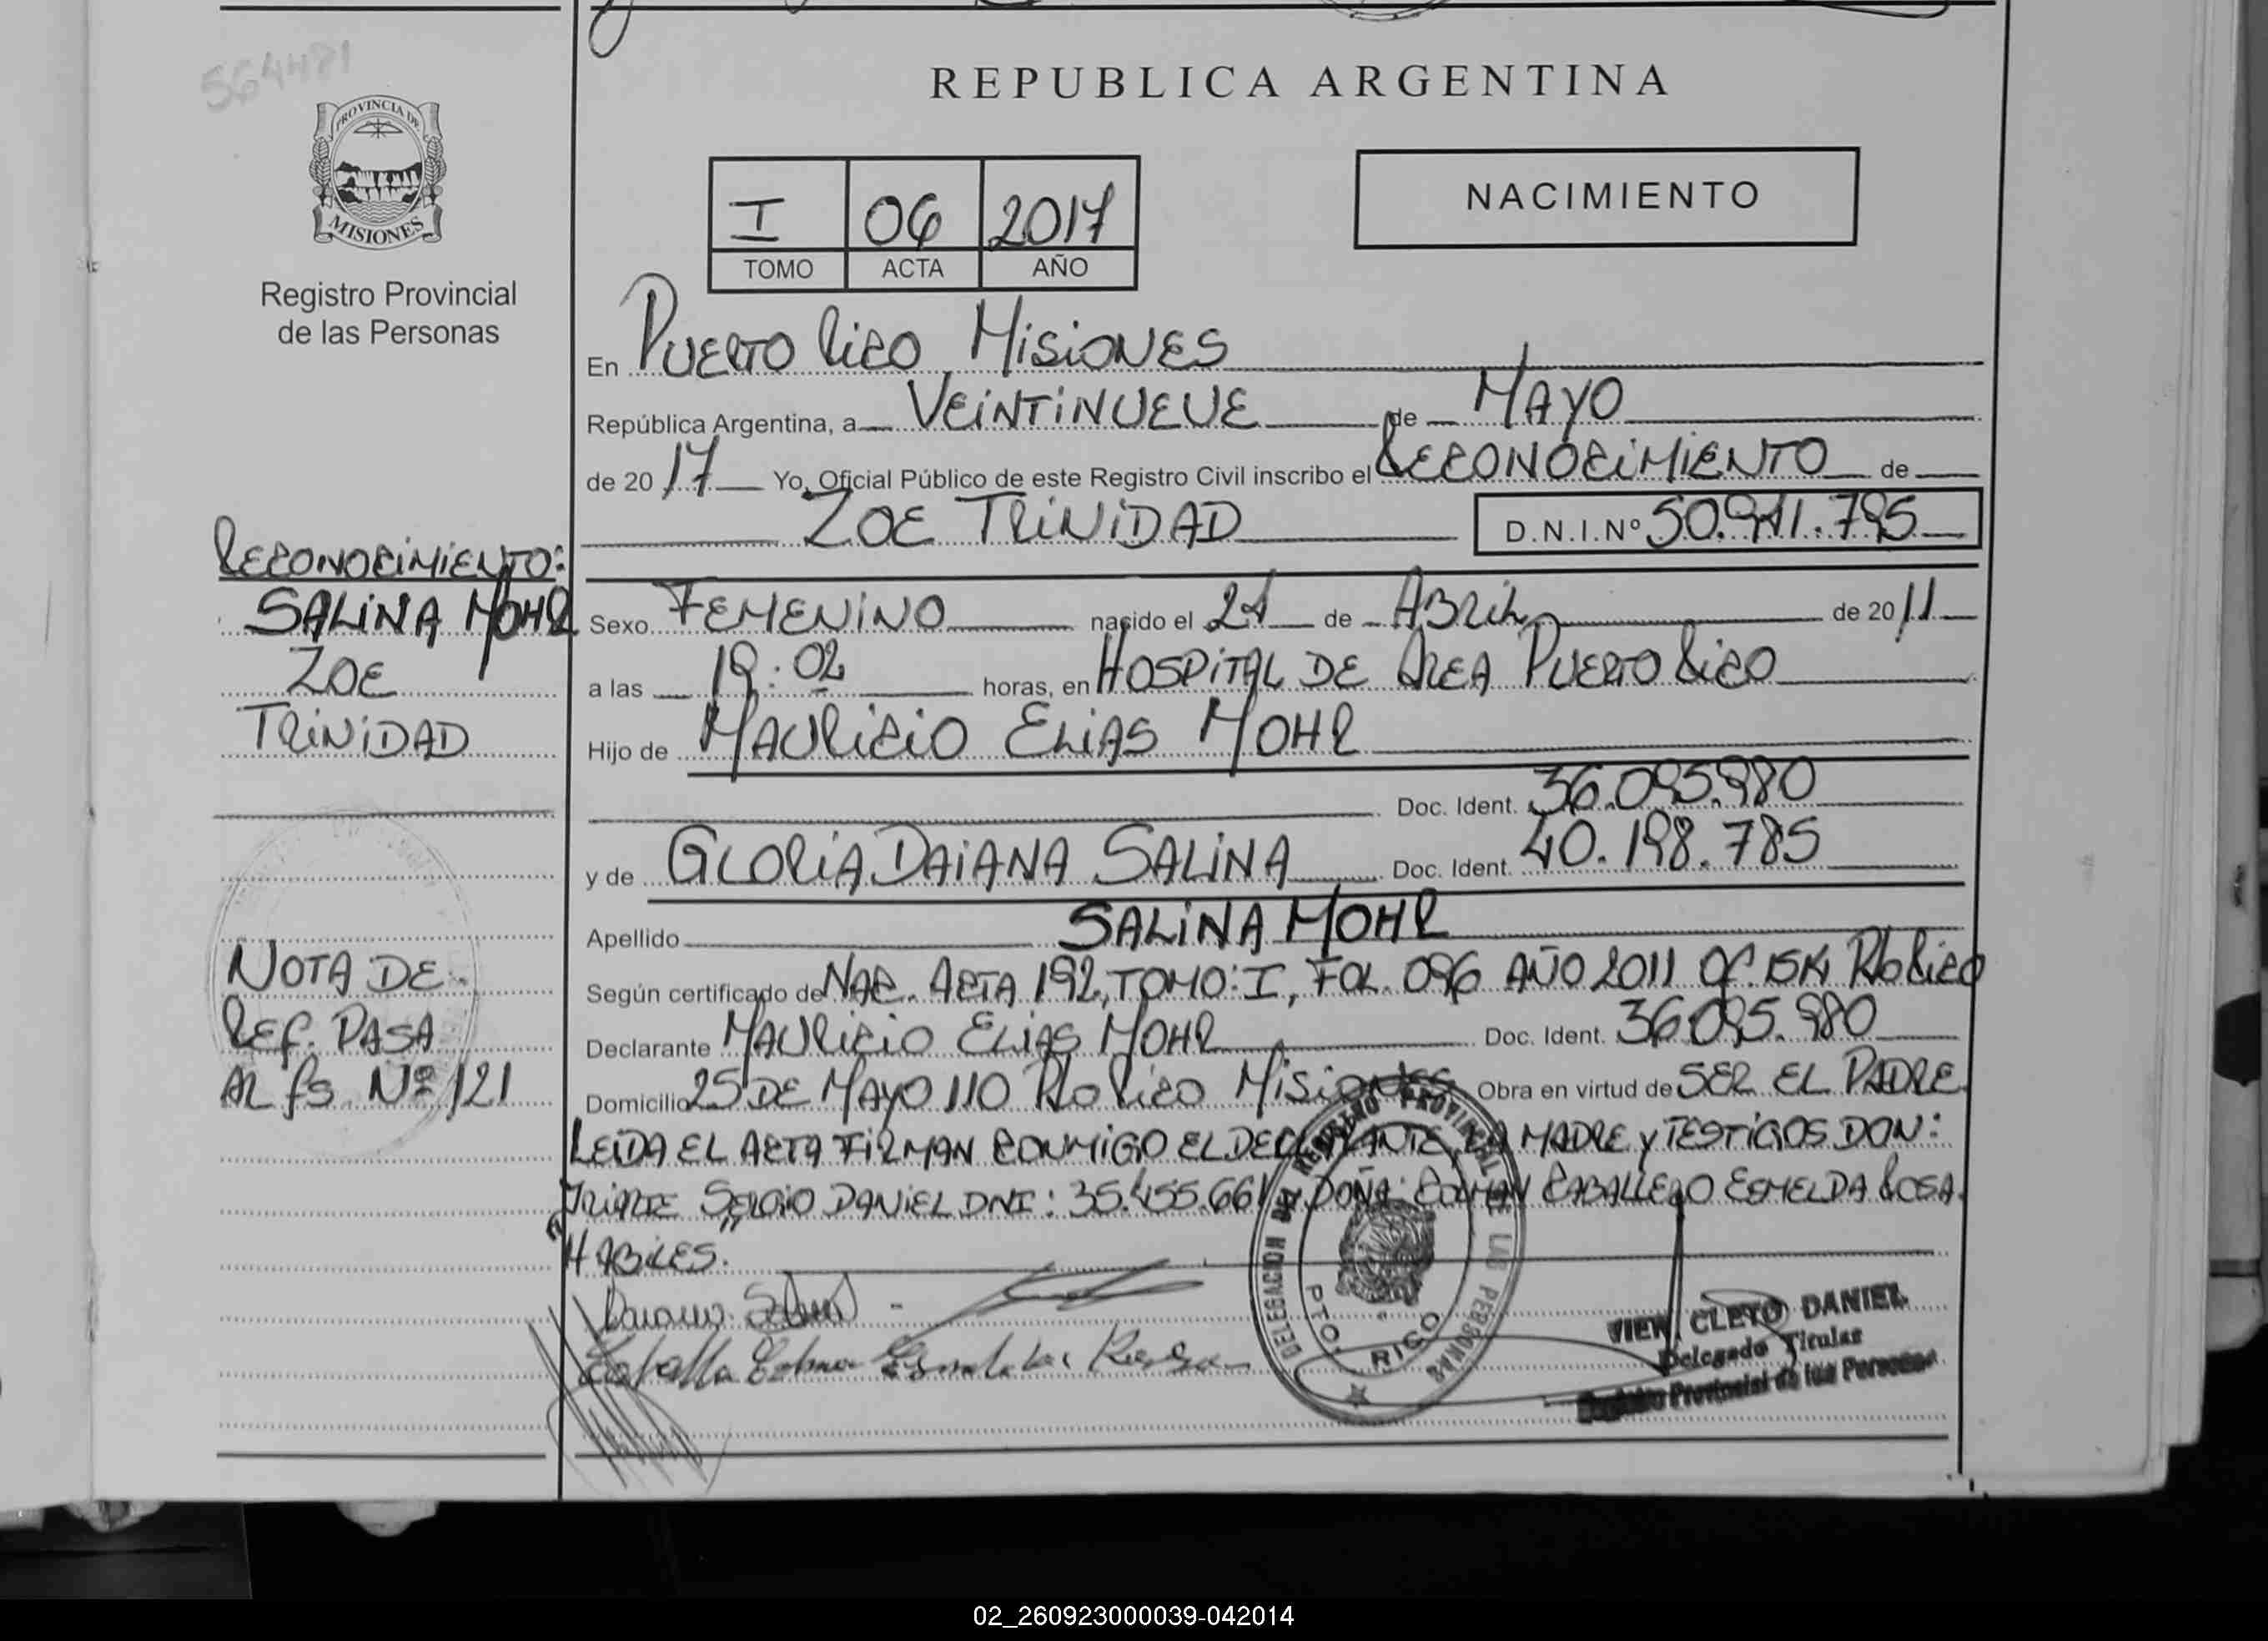 564481
PROVINCIA DE
MISIONES
Registro Provincial
de las Personas
REPUBLICA ARGENTINA
I 06 2017
TOMO ACTA AÑO
NACIMIENTO
En PUERTO RICO MISIONES
República Argentina, a VEINTINUEVE de MAYO
de 20 17 Yo, Oficial Público de este Registro Civil inscribo el RECONOCIMIENTO de
ZOE TRINIDAD D.N.I.Nº 50.911.795
RECONOCIMIENTO:
SALINA MOHR
ZOE
TRINIDAD
Sexo FEMENINO nacido el de ABRIL de 20 11
a las horas, en HOSPITAL DE AREA PUERTO RICO
Hijo de MAURICIO ELIAS MOHR
Doc. Ident. 36.095.980
y de GLORIA DAIANA SALINA Doc. Ident. 40.198.785
Apellido SALINA MOHR
Según certificado de NAC. ACTA 192, TOMO: I, FOL. 096 AÑO 2011 OF. Pto RICO
Declarante MAURICIO ELIAS MOHR Doc. Ident. 36.095.980
Domicilio 25 DE MAYO 110 Pto RICO MISIONES Obra en virtud de SER EL PADRE
LEIDA EL ACTA FIRMAN CONMIGO EL DECLARANTE, LA MADRE y TESTIGOS DON:
IRIARTE SERGIO DANIEL DNI: 35.455.661 y DOÑA: CABALLERO ESMELDA ROSA.
HABILES.
NOTA DE
REF. PASA
AL FS. Nº 121
DELEGACION DEL REGISTRO PROVINCIAL DE LAS PERSONAS
PTO. RICO
VIER, CLETO DANIEL
Delegado Titular
Registro Provincial de las Personas
02_260923000039-042014